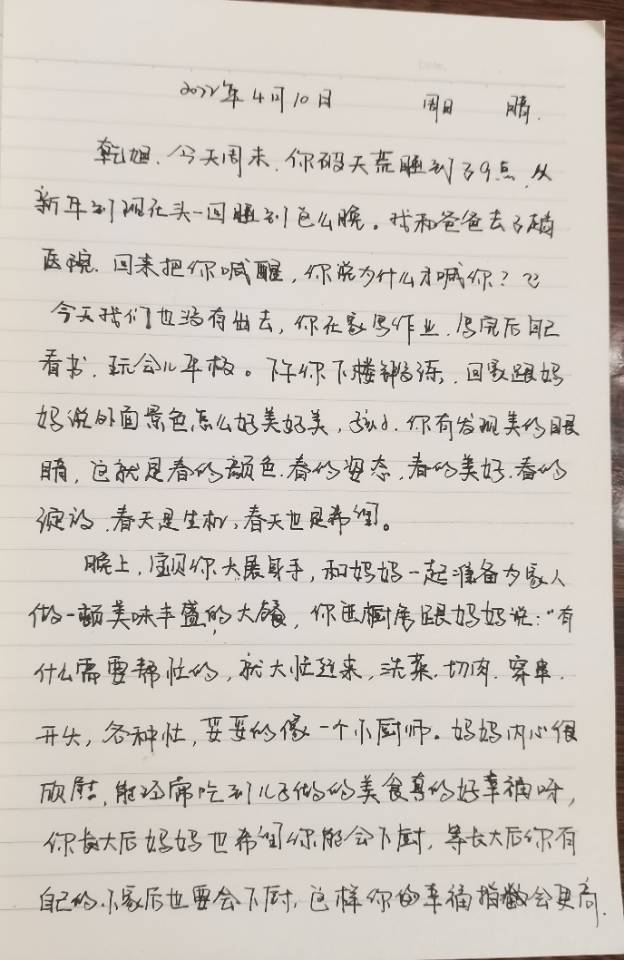 2022年4月10日 周日 晴.
乾旭、今天周末、你破天荒睡到了9点、从
新年到现在头一回睡到这么晚。我和爸爸去了趟
医院、回来把你喊醒,你说为什么才喊你?
今天我们也没有出去,你在家写作业、写完后自己
看书、玩会儿平板。下午你下楼锻炼、回家跟妈
妈说外面景色怎么好美好美,孩儿、你有发现美的眼
睛,这就是春的颜色、春的姿态、春的美好、春的
绽放、春天是生机、春天也是希望。
晚上、宝贝你大展身手,和妈妈一起准备为家人
做一顿美味丰盛的大餐,你进厨房跟妈妈说:“有
什么需要帮忙的,就大忙起来,洗菜、切肉、穿串、
开火,各种忙,妥妥的像一个小厨师。妈妈内心很
欣慰,能经常吃到儿子做的美食真的好幸福呀,
你长大后妈妈也希望你能会下厨,等长大后你有
自己的小家后也要会下厨、这样你的幸福指数会更高.